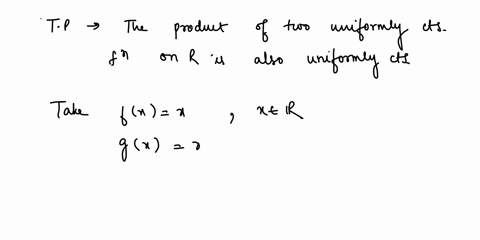 T.P → The product of two uniformly cts.
fⁿ on R is also uniformly cts
Take f(x) = x , x ∈ ℝ
g(x) = x